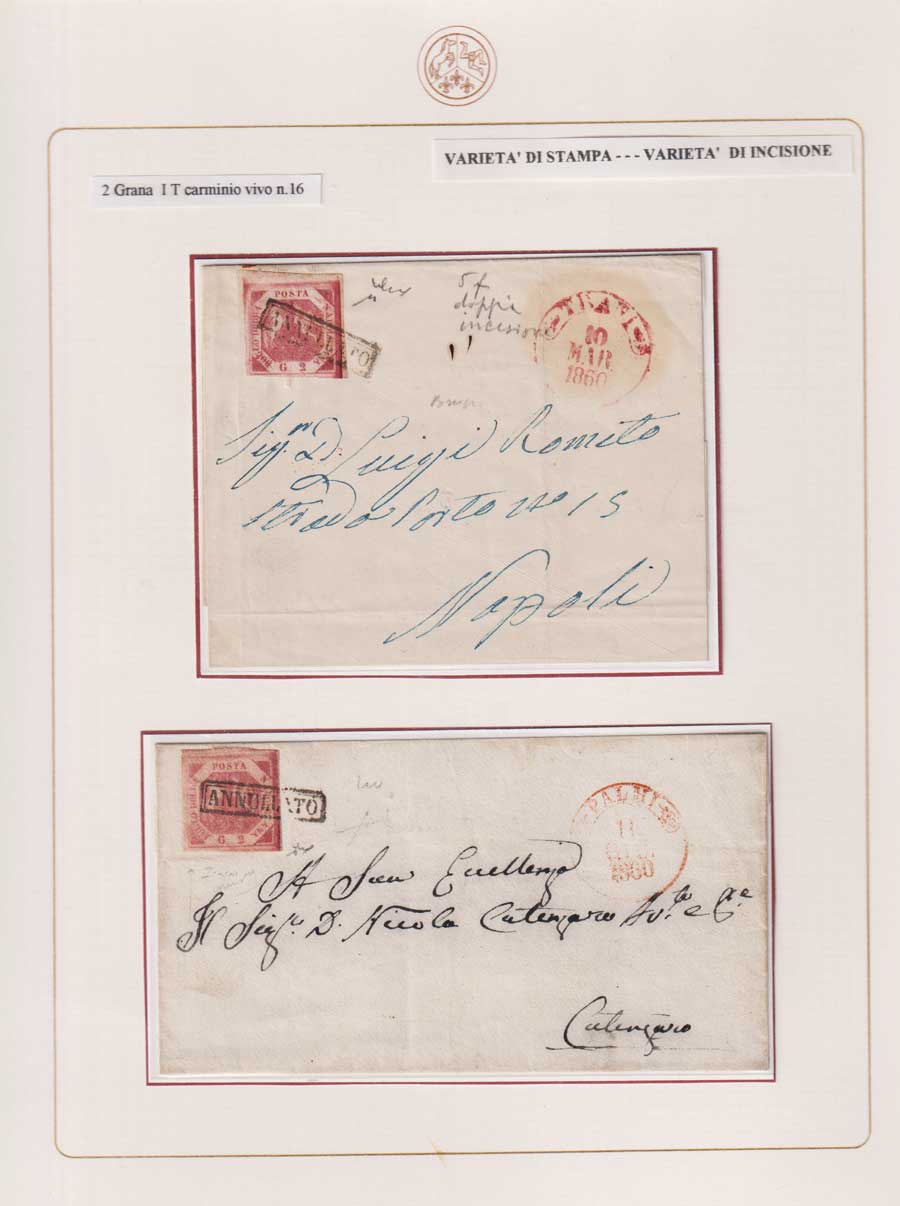 VARIETA' DI STAMPA - - - VARIETA' DI INCISIONE
2 Grana I T carminio vivo n.16
POSTA
G 2
ANNULLATO
5 f
doppia
incisione
TRANI
10
MAR
1860
Sig.r D. Luigi Romito
Strada Porto No 15
Napoli
POSTA
BOLLO DELLA
G 2
ANNULLATO
PALMI
11
1860
A Sua Eccellenza
Il Sig.r D. Nicola Catanzaro
Catanzaro